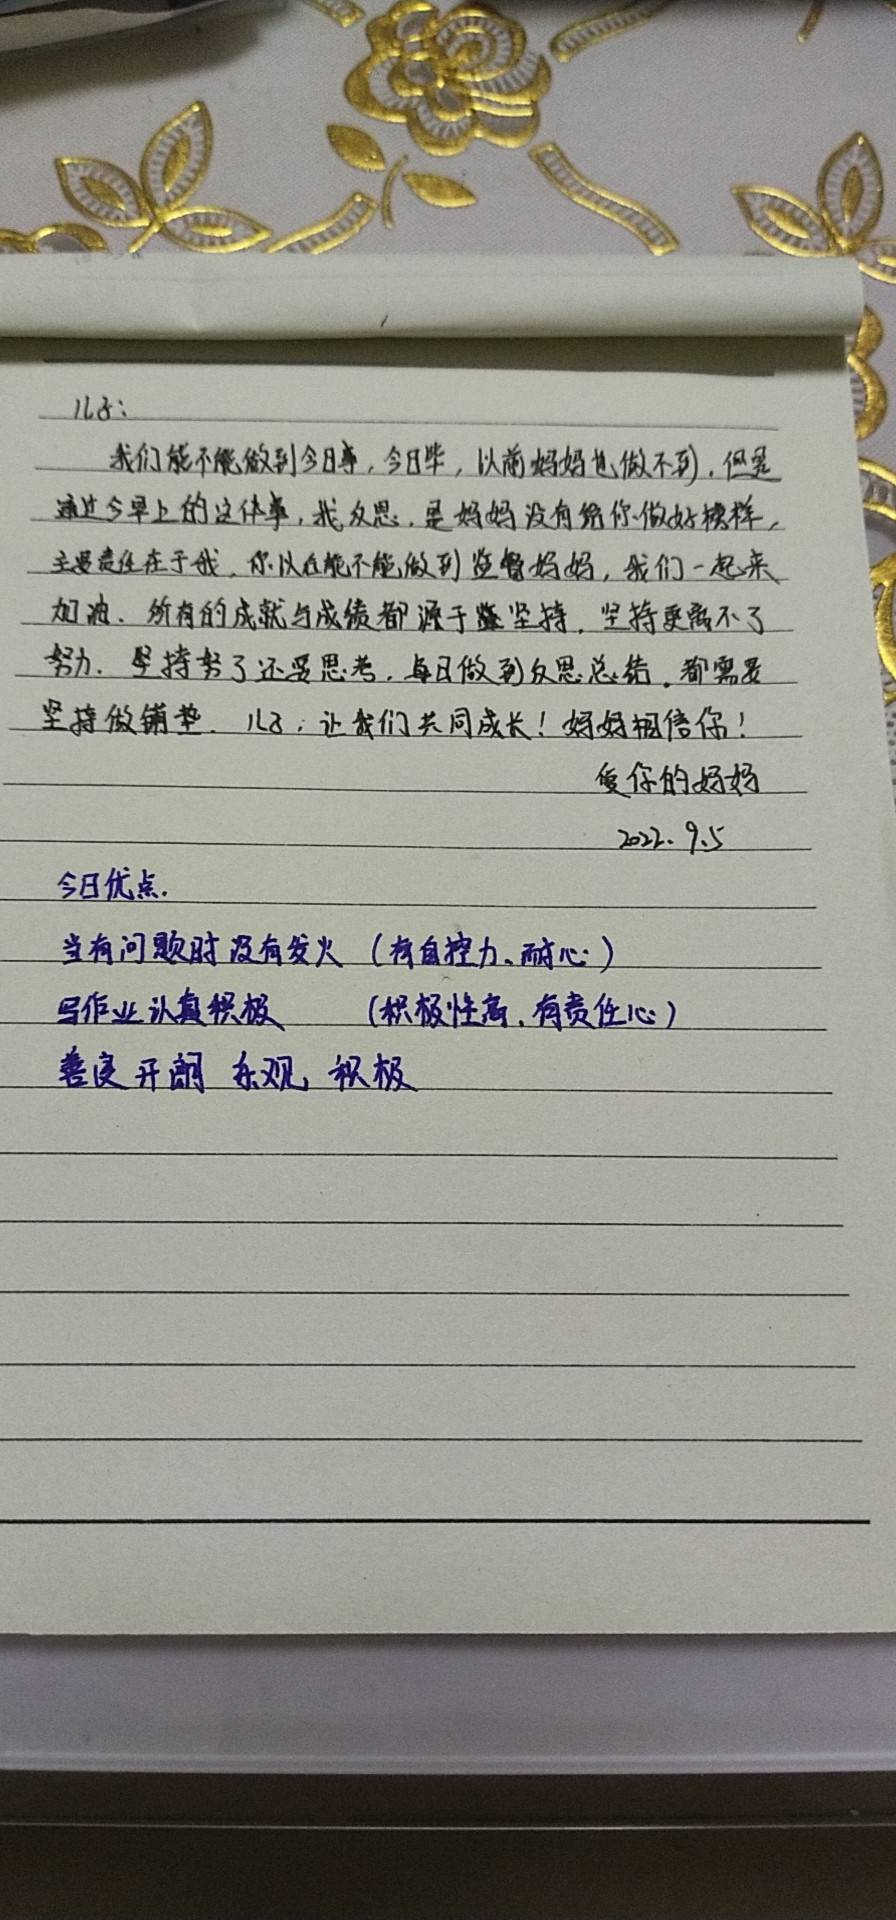 儿子：
我们能不能做到今日事，今日毕，以前妈妈也做不到，但是
通过今早上的这件事，我反思，是妈妈没有给你做好榜样，
主要责任在于我，你以在能不能做到监督妈妈，我们一起来
加油．所有的成就与成绩都源于坚持，坚持更离不了
努力．坚持努了还要思考，每日做到反思总结，都需要
坚持做铺垫．儿子，让我们共同成长！妈妈相信你！
爱你的妈妈
2022.9.5
今日优点．
当有问题时没有发火（有自控力、耐心）
写作业认真积极（积极性高，有责任心）
善良开朗 乐观 积极